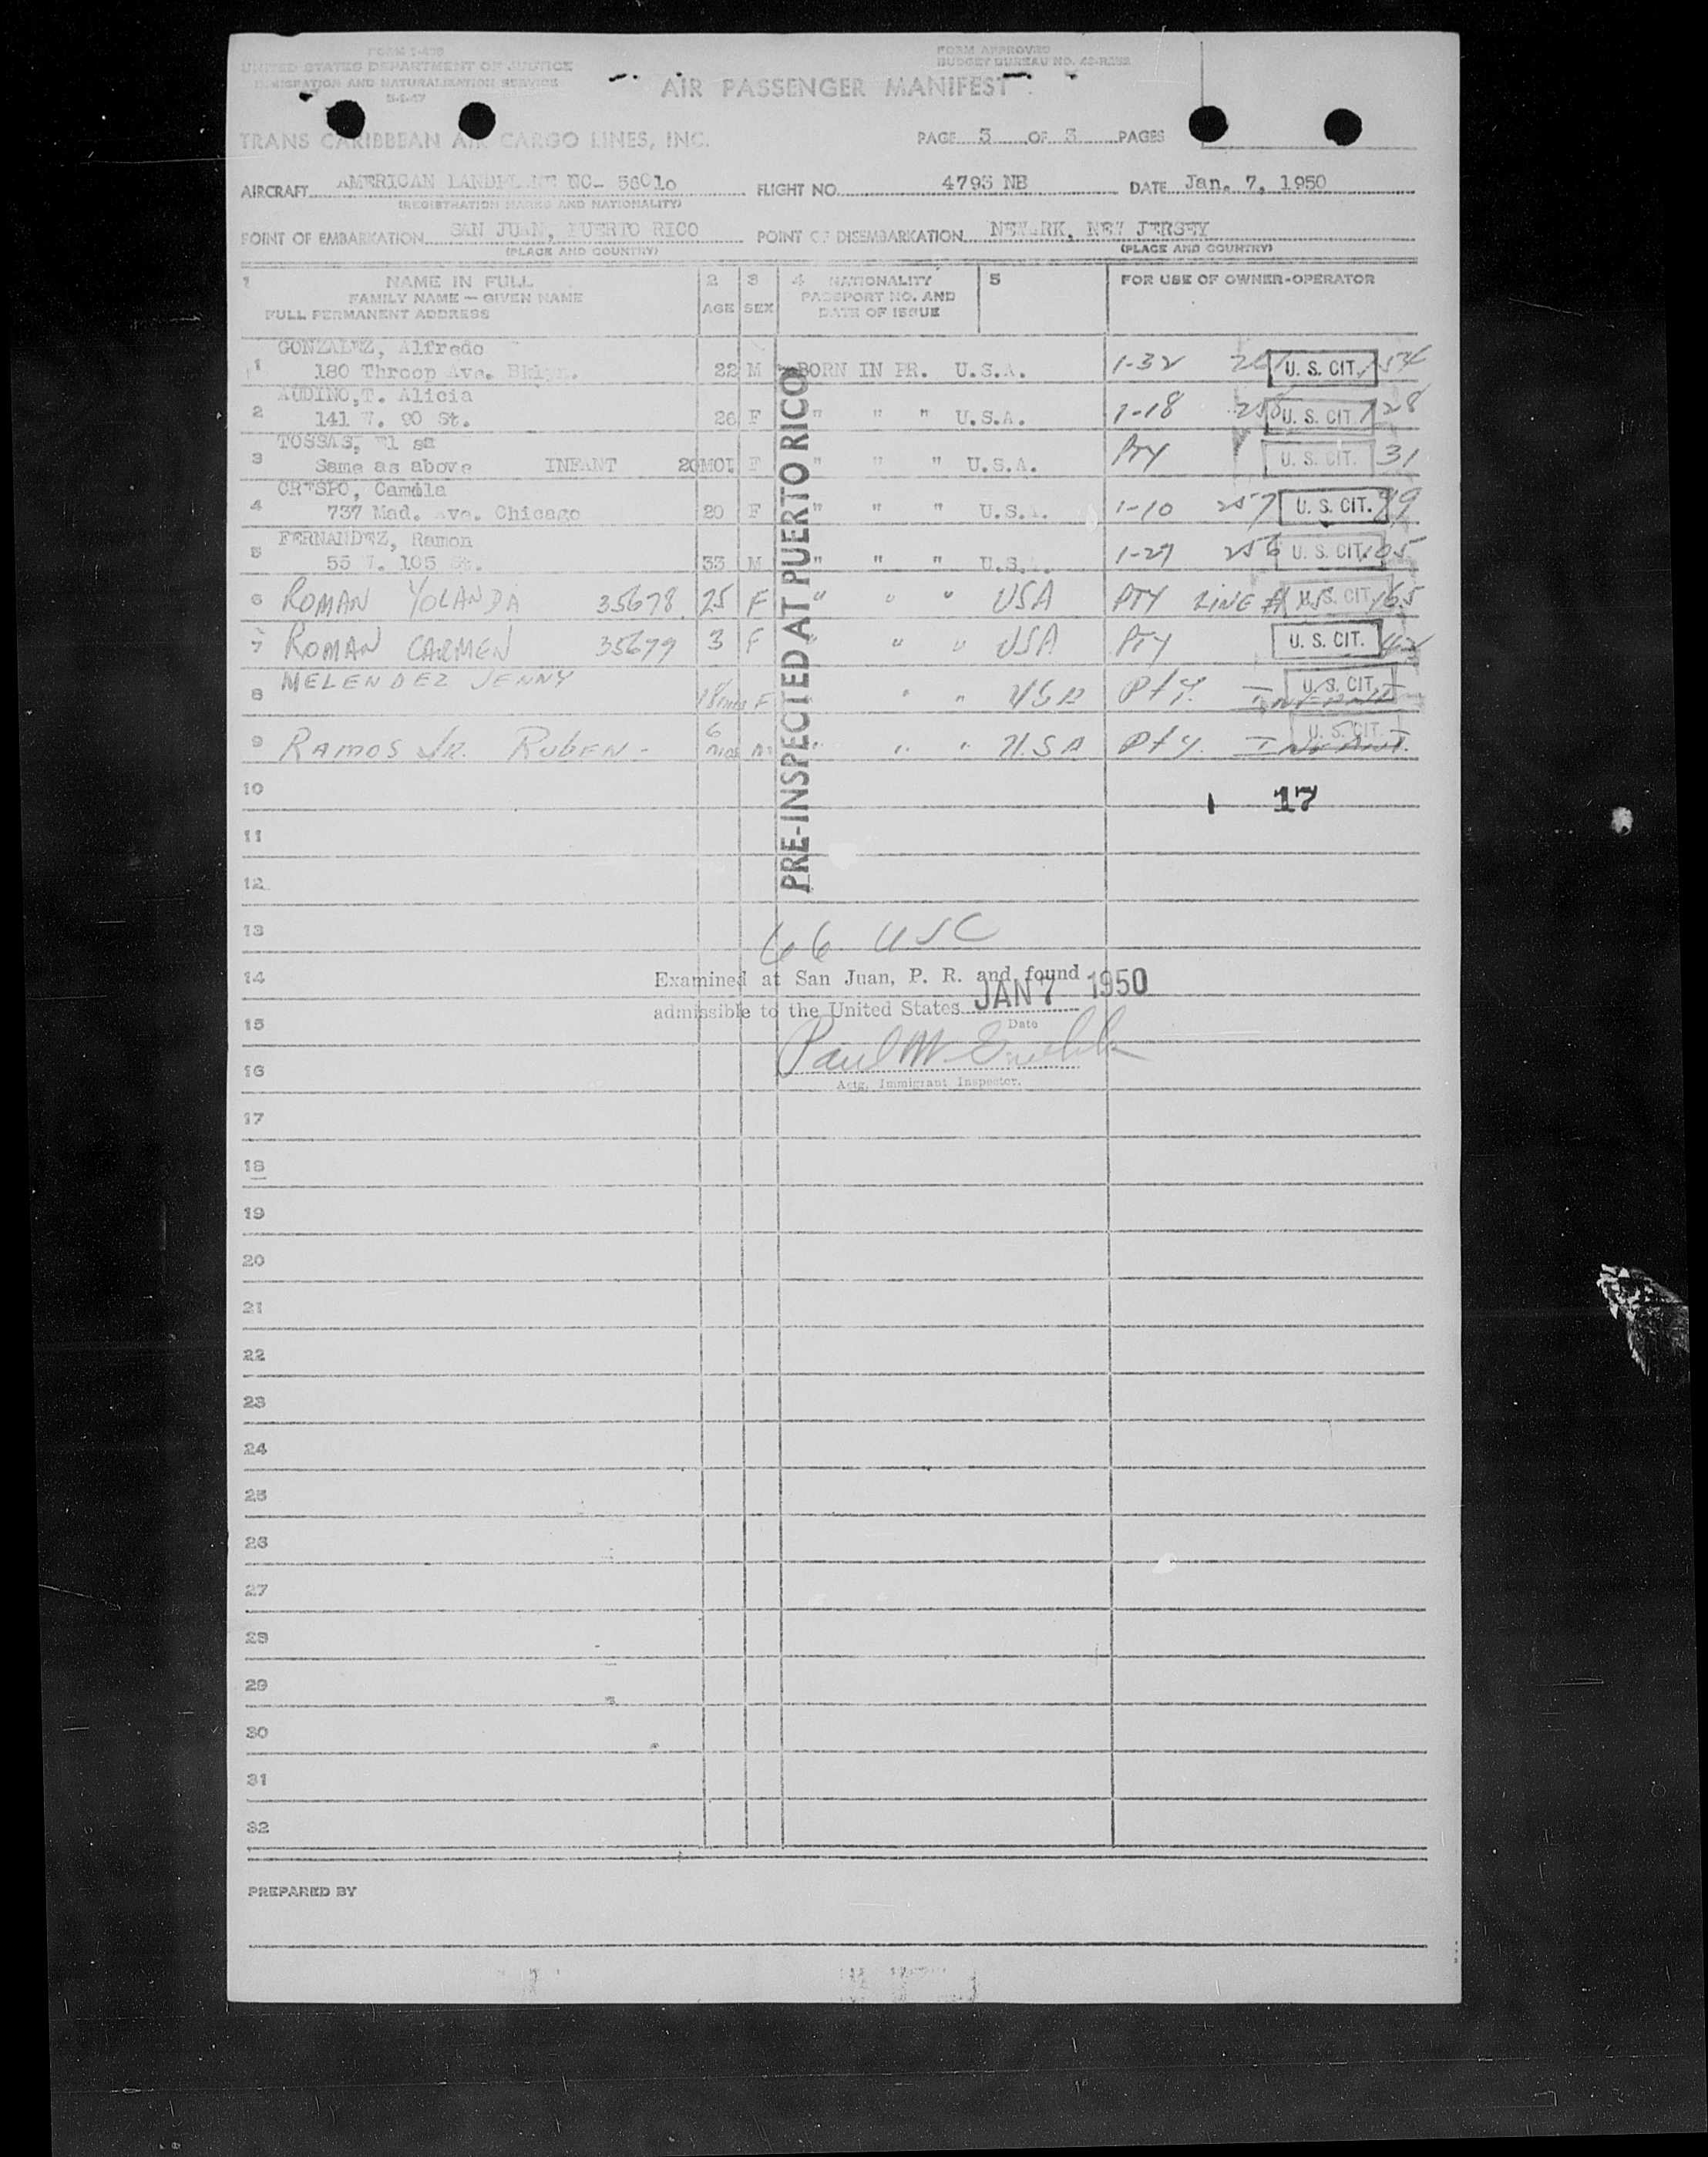 FORM I-466
FORM APPROVED
UNITED STATES DEPARTMENT OF JUSTICE
BUDGET BUREAU NO.
IMMIGRATION AND NATURALIZATION SERVICE
AIR PASSENGER MANIFEST
TRANS CARIBBEAN AIR CARGO LINES, INC.
PAGE 3 OF 3 PAGES
AIRCRAFT AMERICAN LANDPLANE NC- FLIGHT NO. 4793 NB DATE Jan. 7, 1950
(REGISTRATION MARKS AND NATIONALITY)
POINT OF EMBARKATION SAN JUAN, PUERTO RICO POINT OF DISEMBARKATION NEWARK, NEW JERSEY
(PLACE AND COUNTRY) (PLACE AND COUNTRY)
1 NAME IN FULL 2 3 4 NATIONALITY 5 FOR USE OF OWNER-OPERATOR
FAMILY NAME — GIVEN NAME AGE SEX PASSPORT NO. AND
FULL PERMANENT ADDRESS DATE OF ISSUE
GONZALEZ, Alfredo
1 180 Throop Ave. Bklyn. 22 M BORN IN PR. U.S.A. 1-32 U. S. CIT. 154
AUDINO, T. Alicia
2 141 W. 90 St. 26 F " " " U.S.A. 1-18 U. S. CIT. 128
TOSSAS,
3 Same as above INFANT 20MOT F " " " U.S.A. PTY U. S. CIT. 31
CRESPO, Camila
4 737 Mad. Ave. Chicago 20 F " " " U.S. 1-10 257 U. S. CIT. 99
FERNANDEZ, Ramon
5 55 W. 105 St. 33 M " " " U.S. 1-27 256 U. S. CIT. 105
6 ROMAN YOLANDA 35678 25 F " " " USA PTY LINE # U. S. CIT. 165
7 ROMAN CARMEN 35679 3 F " " " USA PTY U. S. CIT. 42
8 MELENDEZ JENNY 18mos F " " " USA Pty. INFANT U. S. CIT.
9 RAMOS JR. RUBEN - 6 mos M " " " U.S.A Pty. INFANT. U. S. CIT.
PRE-INSPECTED AT PUERTO RICO
10 1 17
11
12
13 66 USC
14 Examined at San Juan, P. R. and found
admissible to the United States JAN 7 1950
15 Date
Paul M
16 Actg. Immigrant Inspector.
17
18
19
20
21
22
23
24
25
26
27
28
29
30
31
32
PREPARED BY